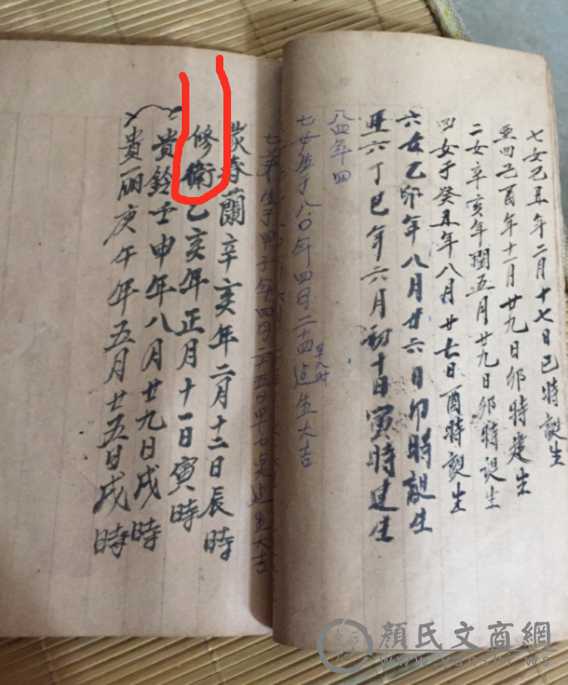 七女己丑年二月十七日巳時誕生
四己酉年十一月廿九日卯時建生
二女辛亥年閏五月廿九日卯時誕生
四女于癸丑年八月廿七日酉時誕生
六女乙卯年八月廿六日卯時誕生
六丁巳年六月初十日寅時建生
八四年四
七女生于八〇年四日二十四
生大吉
七弟生于甲子年四日
生大吉
春蘭辛亥年二月十二日辰時
修衛乙亥年正月十一日寅時
貴鈴壬申年八月廿九日戌時
貴丽庚午年五月廿五日戌時
顏氏文商網